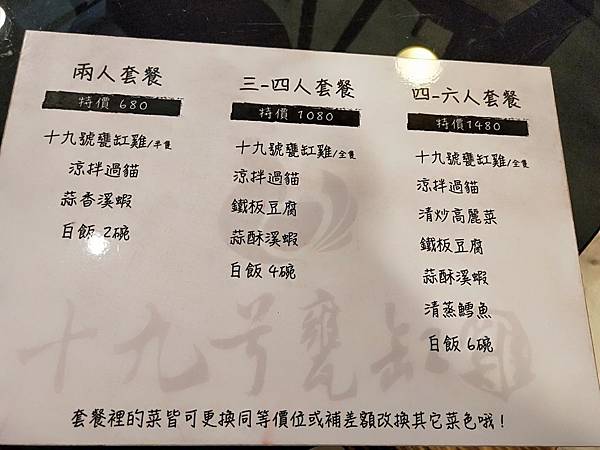 兩人套餐
特價 680
十九號甕缸雞/半隻
涼拌過貓
蒜香溪蝦
白飯 2碗
三-四人套餐
特價 1080
十九號甕缸雞/全隻
涼拌過貓
鐵板豆腐
蒜酥溪蝦
白飯 4碗
四-六人套餐
特價1480
十九號甕缸雞/全隻
涼拌過貓
清炒高麗菜
鐵板豆腐
蒜酥溪蝦
清蒸鱈魚
白飯 6碗
十九号甕缸雞
套餐裡的菜皆可更換同等價位或補差額改換其它菜色哦！